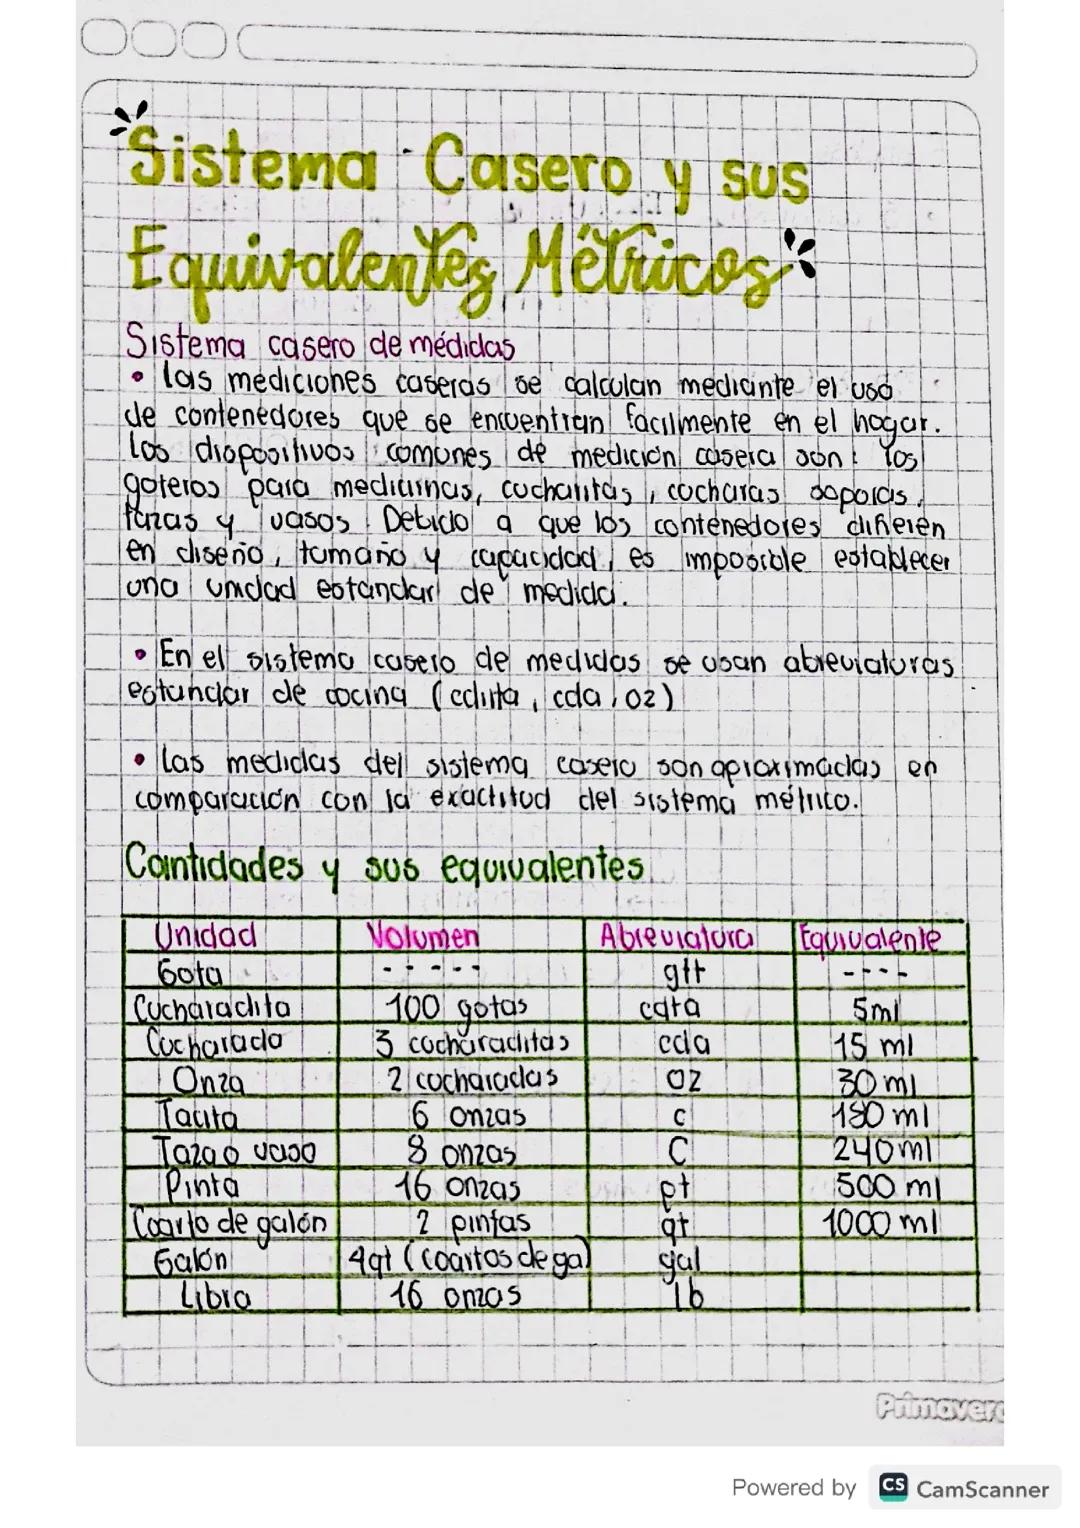 Sistema Casero y sus
Equivalentes Métricos
Sistema casero de médidas
• las mediciones caseras se calculan mediante el uso
de contenedores que se encuentran facilmente en el hogar.
Los dispositivos comunes de medición casera son: los
goteros para medicinas, cucharitas, cucharas soporas,
tazas y vasos. Debido a que los contenedores difieren
en diseño, tamaño y capacidad, es imposible establecer
una unidad estandar de medida.
• En el sistema casero de medidas se usan abreviaturas
estandar de cocina (cdita, cda, oz)
• Las medidas del sistema casero son aproximadas en
comparación con la exactitud del sistema métrico.
Cantidades y sus equivalentes
Unidad Volumen Abreviatura Equivalente
Gota ----- gtt ----
Cucharadita 100 gotas cdta 5ml
Cucharada 3 cucharaditas cda 15 ml
Onza 2 cucharadas oz 30 ml
Tacita 6 onzas c 180 ml
Taza o vaso 8 onzas C 240 ml
Pinta 16 onzas pt 500 ml
Cuarto de galón 2 pintas qt 1000 ml
Galón 4qt (cuartos de ga) gal
Libra 16 onzas lb
Primavera
Powered by CS CamScanner